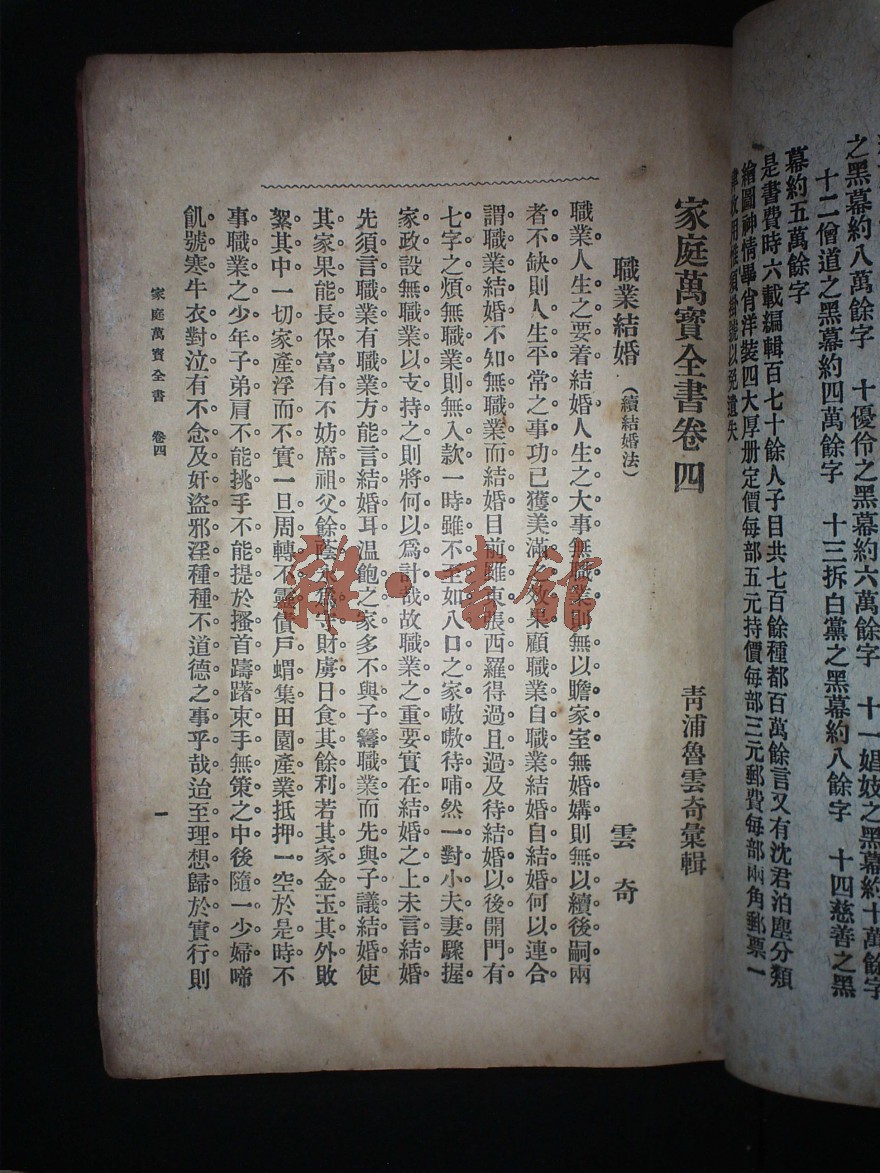 之黑幕約八萬餘字　十優伶之黑幕約六萬餘字　十一娼妓之黑幕約十萬餘字
十二僧道之黑幕約四萬餘字　十三拆白黨之黑幕約八餘字　十四慈善之黑
幕約五萬餘字
是書費時六載編輯百七十餘人子目共七百餘種都百萬餘言又有沈君泊塵分類
繪圖神情畢肖洋裝四大厚册定價每部五元特價每部三元郵費每部兩角郵票一
家庭萬寶全書卷四
青浦魯雲奇彙輯
職業結婚（續結婚法）
雲奇
職業人生之要着結婚人生之大事無職業則無以贍家室無婚媾則無以續後嗣兩
者不缺則人生平常之事功已獲美滿之效果顧職業自職業結婚自結婚何以連合
謂職業結婚不知無職業而結婚目前雖東張西羅得過且過及待結婚以後開門有
七字之煩無職業則無入款一時雖不至如八口之家嗷嗷待哺然一對小夫妻驟握
家政設無職業以支持之則將何以爲計哉故職業之重要實在結婚之上未言結婚
先須言職業有職業方能言結婚耳温飽之家多不與子籌職業而先與子議結婚使
其家果能長保富有不妨席祖父餘蔭永爲守財虜日食其餘利若其家金玉其外敗
絮其中一切家產浮而不實一旦周轉不靈債戶蝟集田園產業抵押一空於是時不
事職業之少年子弟肩不能挑手不能提於搔首躊躇束手無策之中後隨一少婦啼
飢號寒牛衣對泣有不念及奸盜邪淫種種不道德之事乎哉迨至理想歸於實行則
家庭萬寶全書　卷四
一
雜·書館